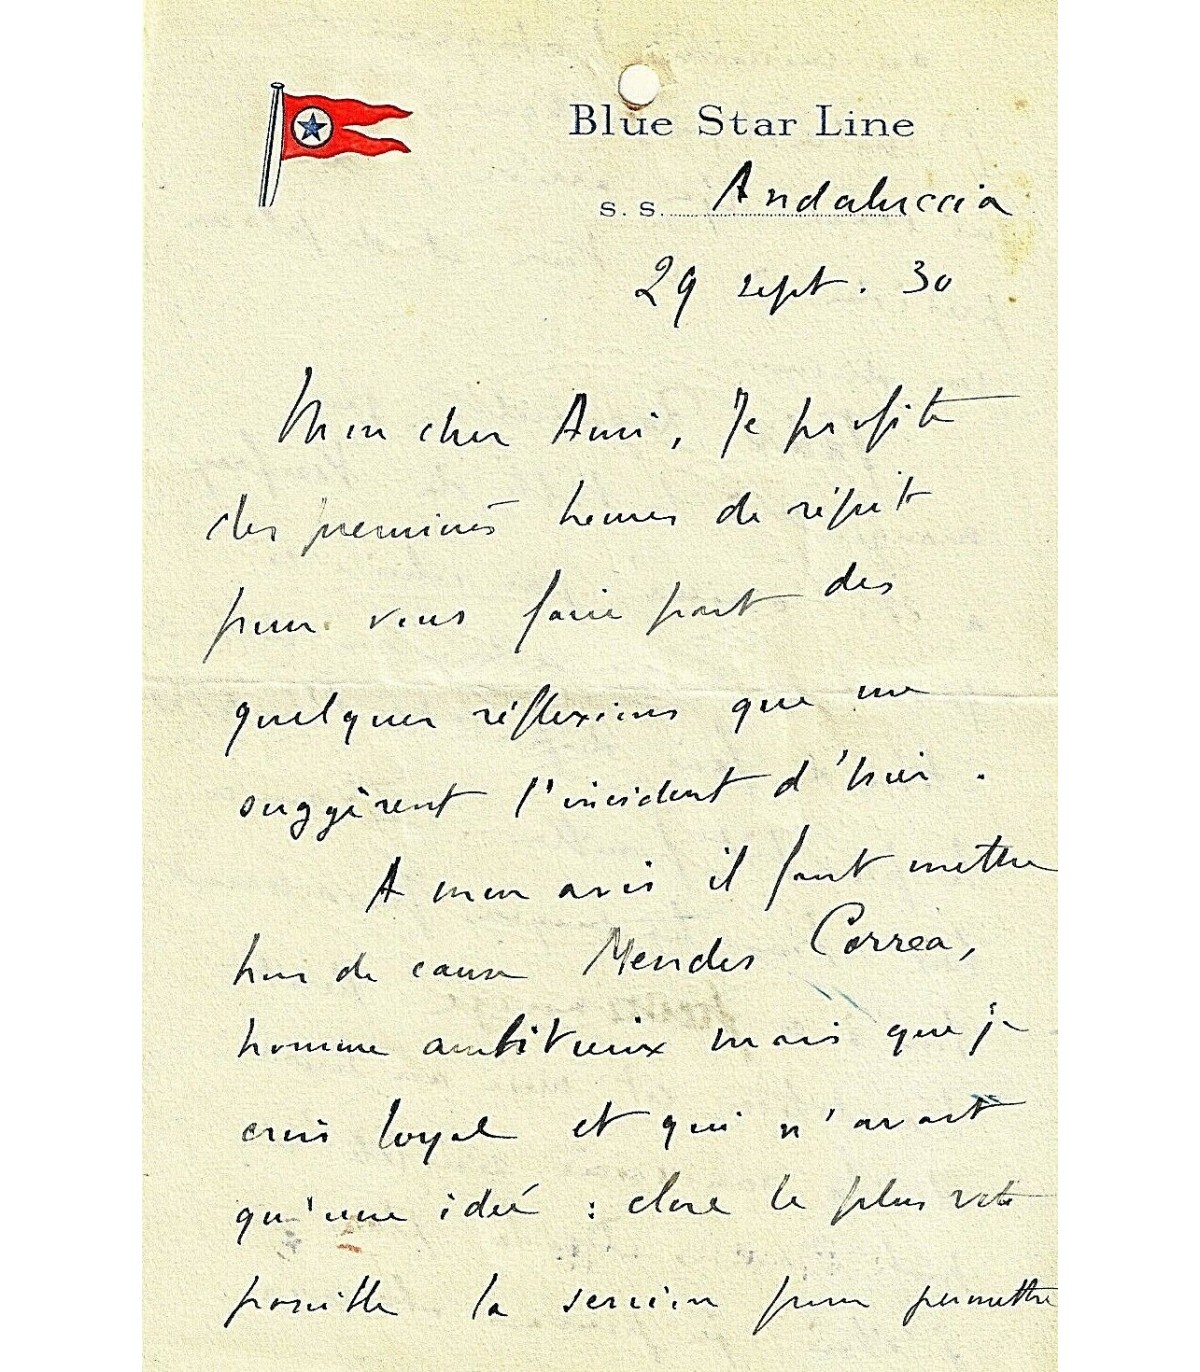 Blue Star Line
s. s. Andaluccia
29 sept. 30
Mon cher Ami, Je profite
des premières heures de répit
pour vous faire part des
quelques réflexions que me
suggèrent l'incident d'hier.
A mon avis il faut mettre
hors de cause Mendes Corrêa,
homme ambitieux mais que je
crois loyal et qui n'avait
qu'une idée : clore le plus vite
possible la session pour permettre